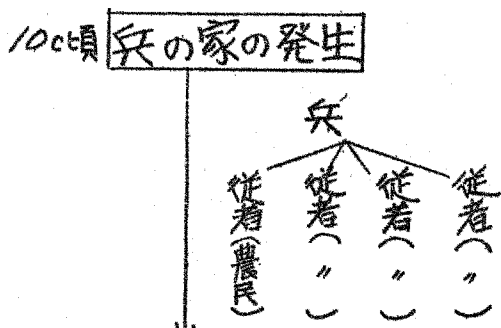 10c頃 兵の家の発生
兵
従者(農民)
従者(〃)
従者(〃)
従者(〃)